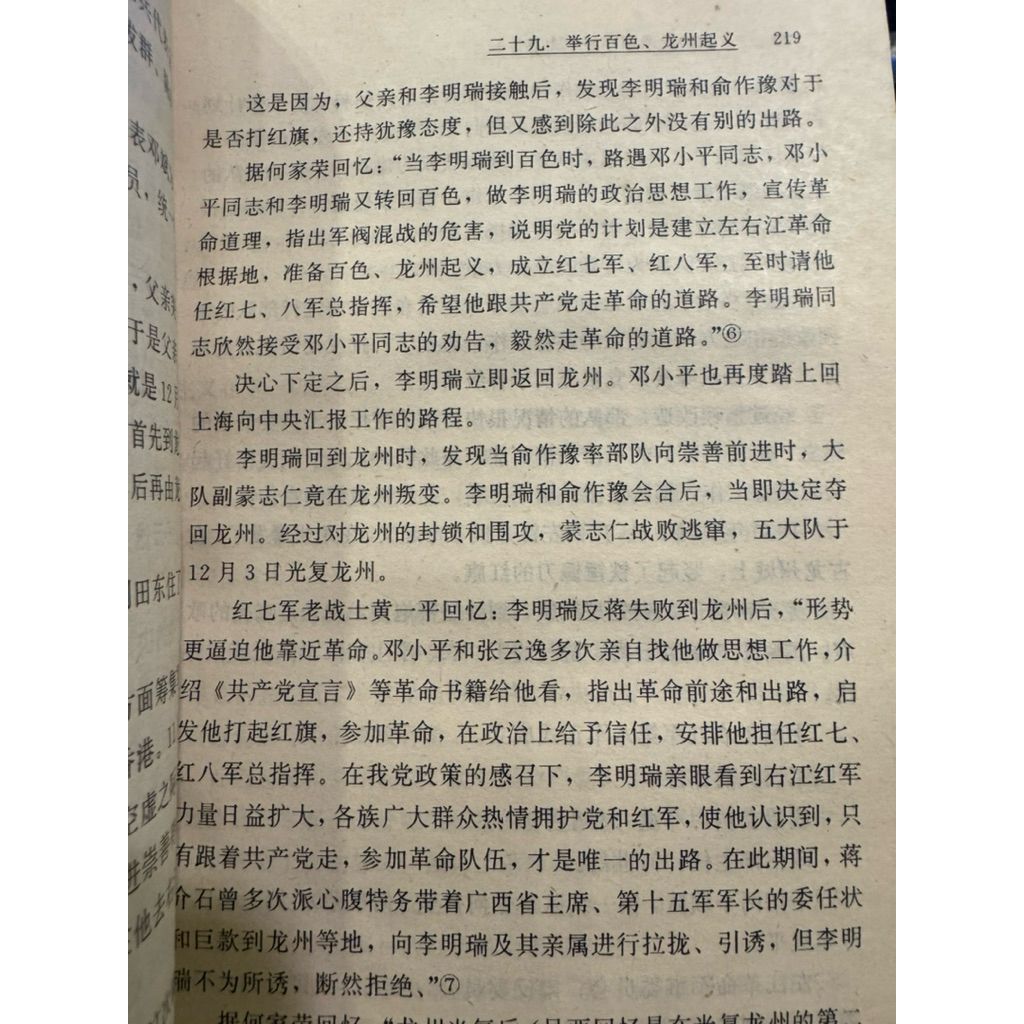 二十九. 举行百色、龙州起义 219
这是因为，父亲和李明瑞接触后，发现李明瑞和俞作豫对于
是否打红旗，还持犹豫态度，但又感到除此之外没有别的出路。
据何家荣回忆：“当李明瑞到百色时，路遇邓小平同志，邓小
平同志和李明瑞又转回百色，做李明瑞的政治思想工作，宣传革
命道理，指出军阀混战的危害，说明党的计划是建立左右江革命
根据地，准备百色、龙州起义，成立红七军、红八军，至时请他
任红七、八军总指挥，希望他跟共产党走革命的道路。李明瑞同
志欣然接受邓小平同志的劝告，毅然走革命的道路。”⑥
决心下定之后，李明瑞立即返回龙州。邓小平也再度踏上回
上海向中央汇报工作的路程。
李明瑞回到龙州时，发现当俞作豫率部队向崇善前进时，大
队副蒙志仁竟在龙州叛变。李明瑞和俞作豫会合后，当即决定夺
回龙州。经过对龙州的封锁和围攻，蒙志仁战败逃窜，五大队于
12月3日光复龙州。
红七军老战士黄一平回忆：李明瑞反蒋失败到龙州后，“形势
更逼迫他靠近革命。邓小平和张云逸多次亲自找他做思想工作，介
绍《共产党宣言》等革命书籍给他看，指出革命前途和出路，启
发他打起红旗，参加革命，在政治上给予信任，安排他担任红七、
红八军总指挥。在我党政策的感召下，李明瑞亲眼看到右江红军
力量日益扩大，各族广大群众热情拥护党和红军，使他认识到，只
有跟着共产党走，参加革命队伍，才是唯一的出路。在此期间，蒋
介石曾多次派心腹特务带着广西省主席、第十五军军长的委任状
和巨款到龙州等地，向李明瑞及其亲属进行拉拢、引诱，但李明
瑞不为所诱，断然拒绝、”⑦